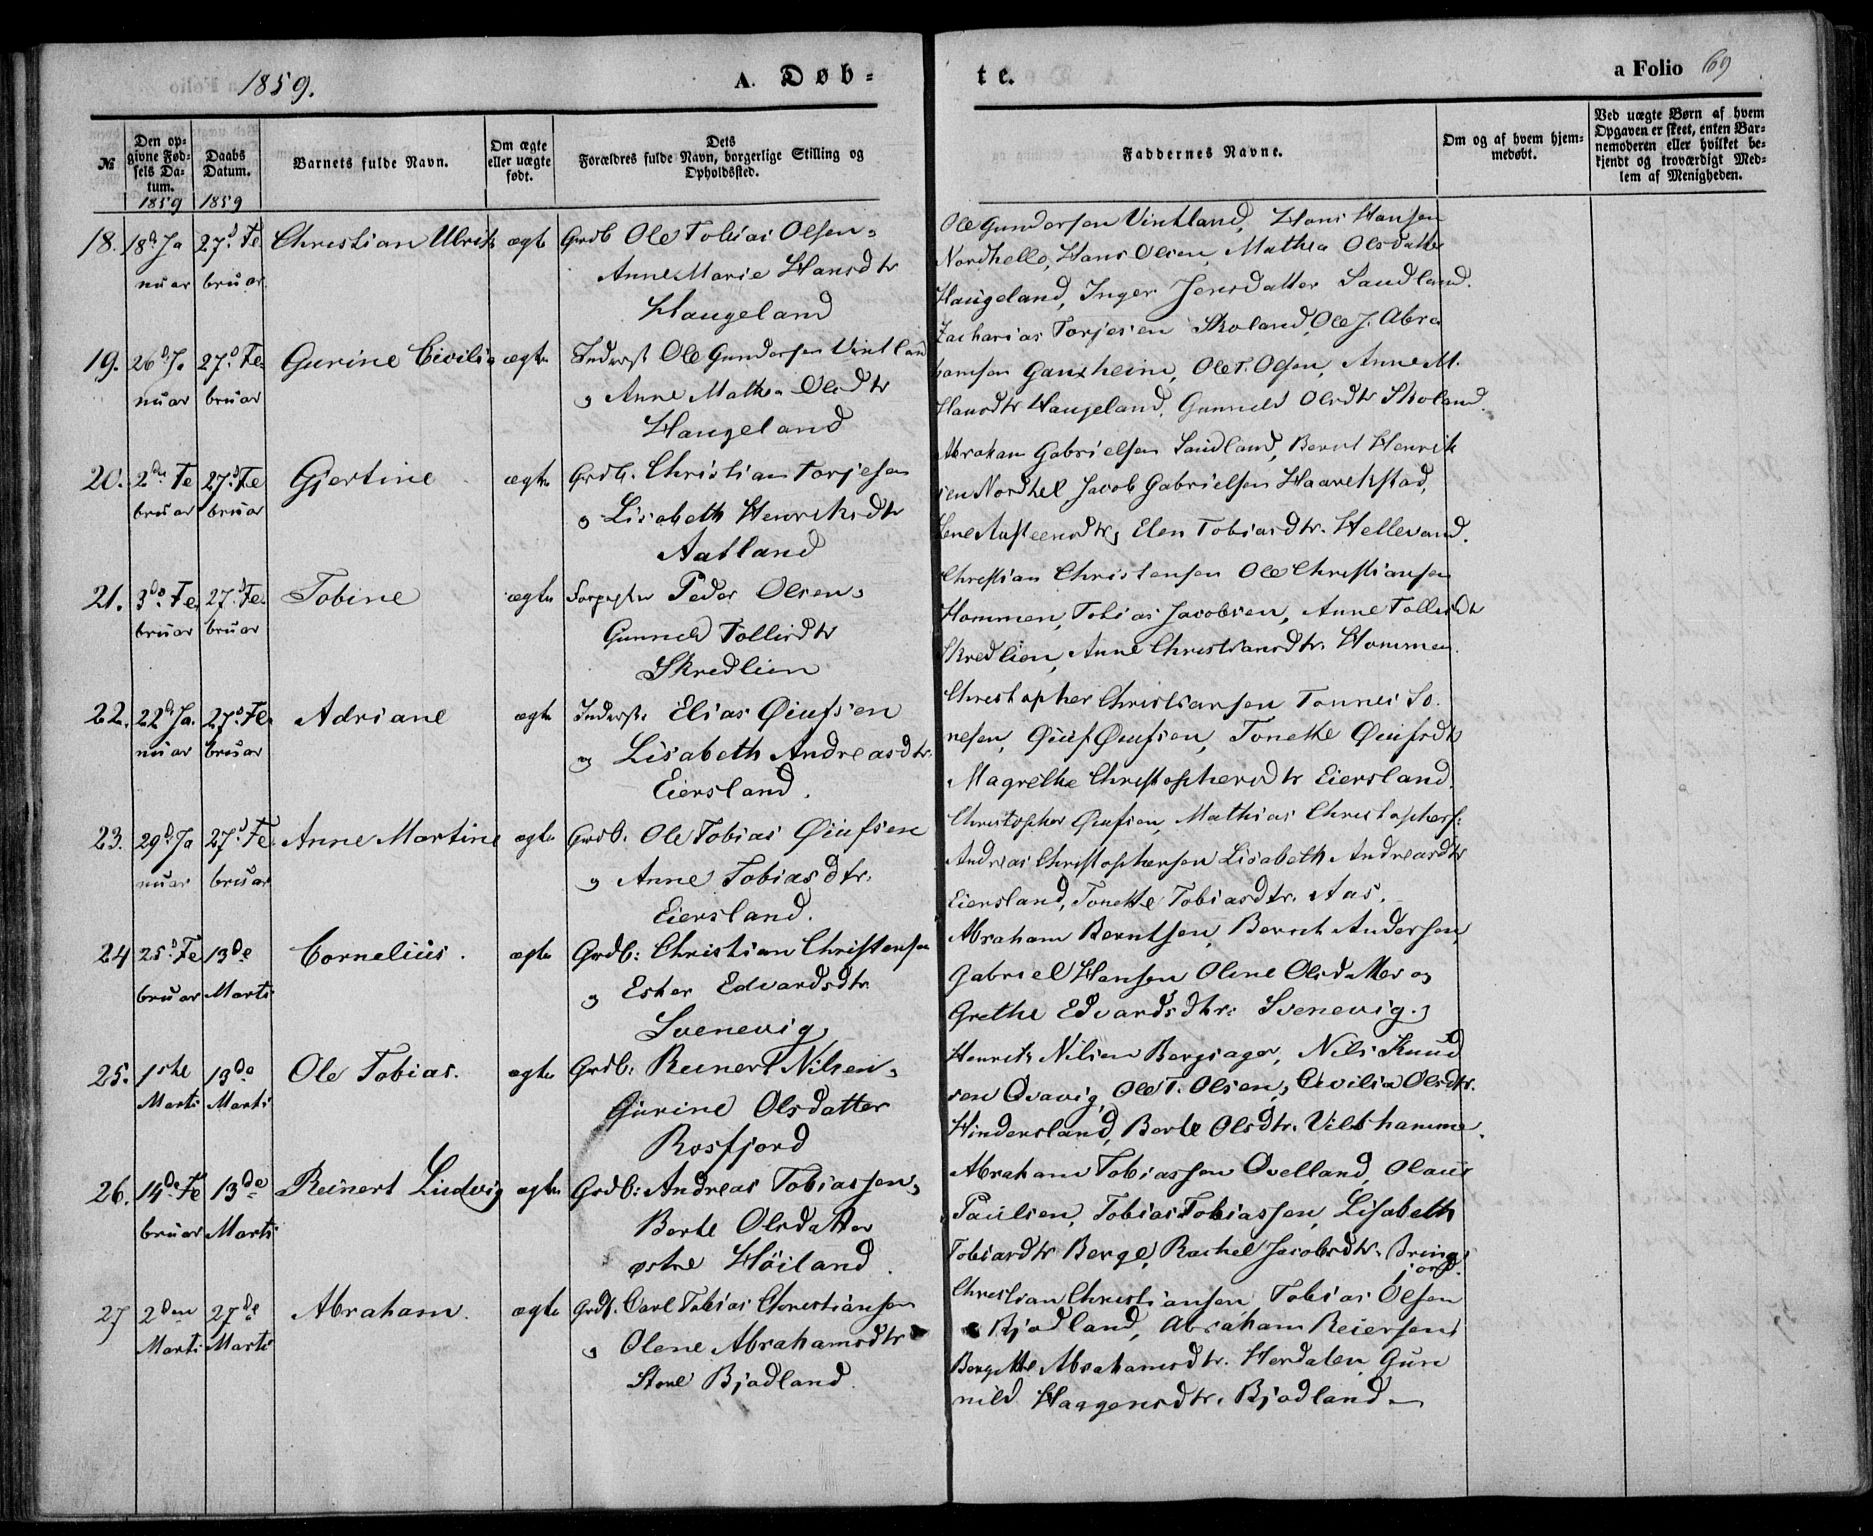 1859.
A. Døb-
te.
a Folio 69
№
Den op-
givne Fød-
sels Da-
tum.
1859
Daabs
Datum.
1859
Barnets fulde Navn.
Om ægte
eller uægte
født.
Dets
Forældres fulde Navn, borgerlige Stilling og
Opholdssted.
Faddernes Navne.
Om og af hvem hjem-
medøbt.
Ved uægte Børn af hvem
Opgaven er skeet, enten Bar-
nemoderen eller hvilket be-
kjendt og troværdigt Med-
lem af Menigheden.
18. 18d Ja
nuar
27d Fe
bruar
Christian Ulrik
ægte
Grdb Ole Tobias Olsen
Anne Marie Hansdtr
Haugeland
Ole Gundersen Vintland, Hans Hansen
Nordhelle, Hans Olsen, Mathea Olsdatter
Haugeland, Inger Jensdatter Sandland.
19. 26d Ja
nuar
27d Fe
bruar
Gurine Civilia
ægte
Inderst Ole Gundersen Vintland
og Anne Mathea Olsdtr
Haugeland
Zacharias Torjesen Skoland, Ole J. Abra
hamsen Ganxheim, Ole T. Olsen, Anne M.
Hansdtr Haugeland, Gunneld Olsdtr Skoland.
20. 2den Fe
bruar
27d Fe
bruar
Gjertine
ægte
Grdb. Christian Torjesen
og Lisabeth Henriksdtr
Aatland
Abraham Gabrielsen Sandland, Bernt Henrik
sen Nordhel, Jacob Gabrielsen Haarekstad,
Lene Austeensdtr, Elen Tobiasdtr. Hellevand.
21. 3de Fe
bruar
27d Fe.
bruar
Tobine
ægte
Peder Olsen
Gunneld Tollisdtr
Skredlien
Christian Christensen Ole Christiansen
Hommen, Tobias Jacobsen, Anne Tollisdtr
Skredlien, Anne Christiansdtr. Hommen.
22. 22d Ja.
nuar
27d Fe.
bruar
Adriane
ægte
Inderste Elias Øiufsen
og Lisabeth Andreasdtr.
Eiersland.
Christopher Christiansen Tønnes So.
nesen, Øiuf Øiufsen, Tonette Øiufsdtr
Magrethe Christophersdtr Eiersland.
23. 29d Ja
nuar
27d Fe.
bruar
Anne Martine
ægte
Grdb. Ole Tobias Øiufsen
og Anne Tobiasdtr.
Eiersland.
Christopher Øiufsen, Mathias Christophers:
Andreas Christophersen Lisabeth Andreasdtr
Eiersland, Tonette Tobiasdtr. Aas.
24 25d Fe
bruar
13de
Marti
Cornelius.
ægte
Grdb: Christian Christensen
og Ester Edvardsdtr
Svenevig
Abraham Berntsen, Bernt Andersen,
Gabriel Hansen Oline Olsdatter og
Grethe Edvardsdtr: Svenevig.
25. 1ste
Marti
13de
Marti
Ole Tobias.
ægte
Grdb. Reinert Nilsen
Gurine Olsdatter
Rosfjord
Henrik Nilsen Bergsager, Nils Knud
sen Qvavig, Ole T. Olsen, Civilia Olsdtr.
Hindersland, Berte Olsdtr. Vilshamme.
26. 14de Fe
bruar
13de
Marti
Reinert Ludvig
ægte
Grdb: Andreas Tobiassen
Berte Olsdatter
østre Høiland.
Abraham Tobiassen Qvelland, Olaus
Paulsen, Tobias Tobiassen, Lisabeth
Tobiasdtr Berge, Rachel Jacobsdtr.
jord.
27 2den
Marti
27de
Marti
Abraham.
ægte
Grdb. Carl Tobias Christiansen
og Olene Abrahamsdtr
Store Bjadland.
Christian Christiansen, Tobias Olsen
Bjadland, Abraham Reiersen
Bergitte Abrahamsdtr. Herdalen, Gun
nild Haagensdtr. Bjadland